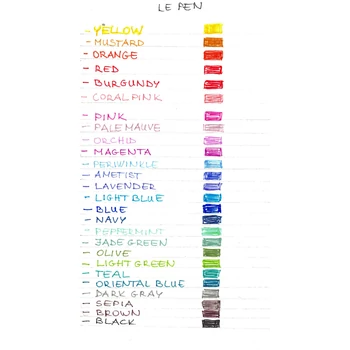 LE PEN
- YELLOW
- MUSTARD
- ORANGE
- RED
- BURGUNDY
- CORAL PINK
- PINK
- PALE MAUVE
- ORCHID
- MAGENTA
- PERIWINKLE
- AMETIST
- LAVENDER
- LIGHT BLUE
- BLUE
- NAVY
- PEPPERMINT
- JADE GREEN
- OLIVE
- LIGHT GREEN
- TEAL
- ORIENTAL BLUE
- DARK GRAY
- SEPIA
- BROWN
- BLACK